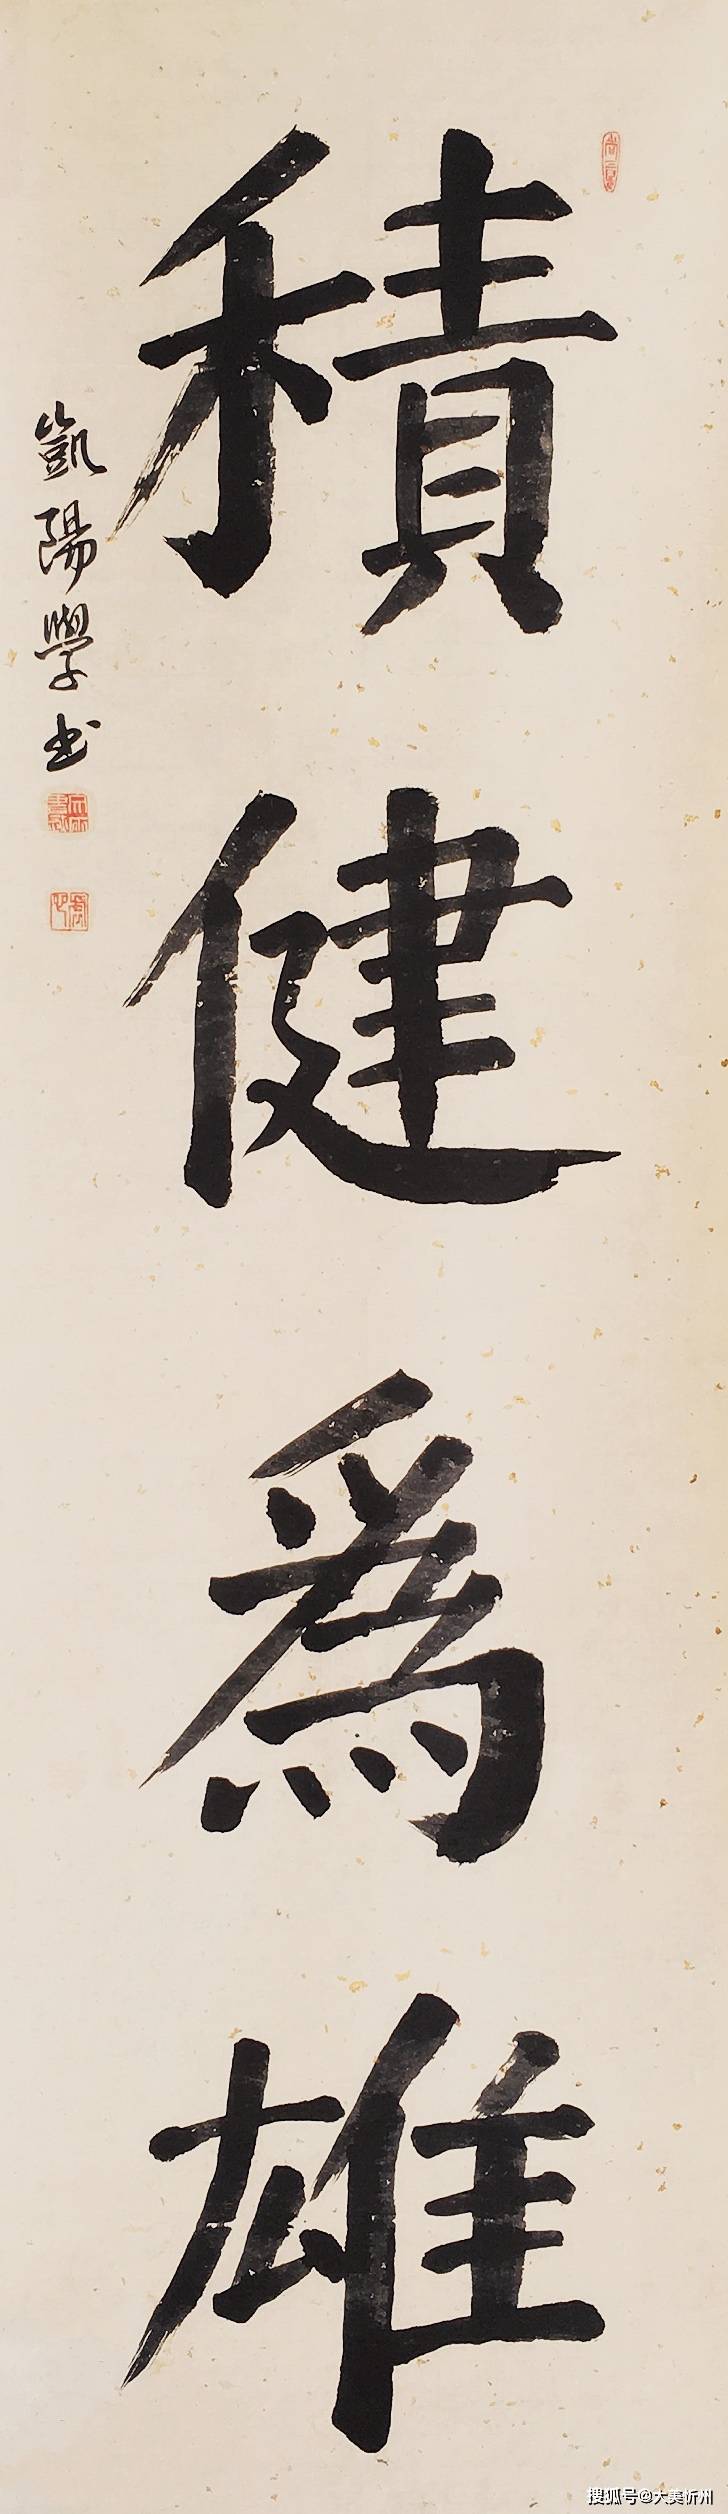 積健為雄
凱陽學书
搜狐号@大美忻州